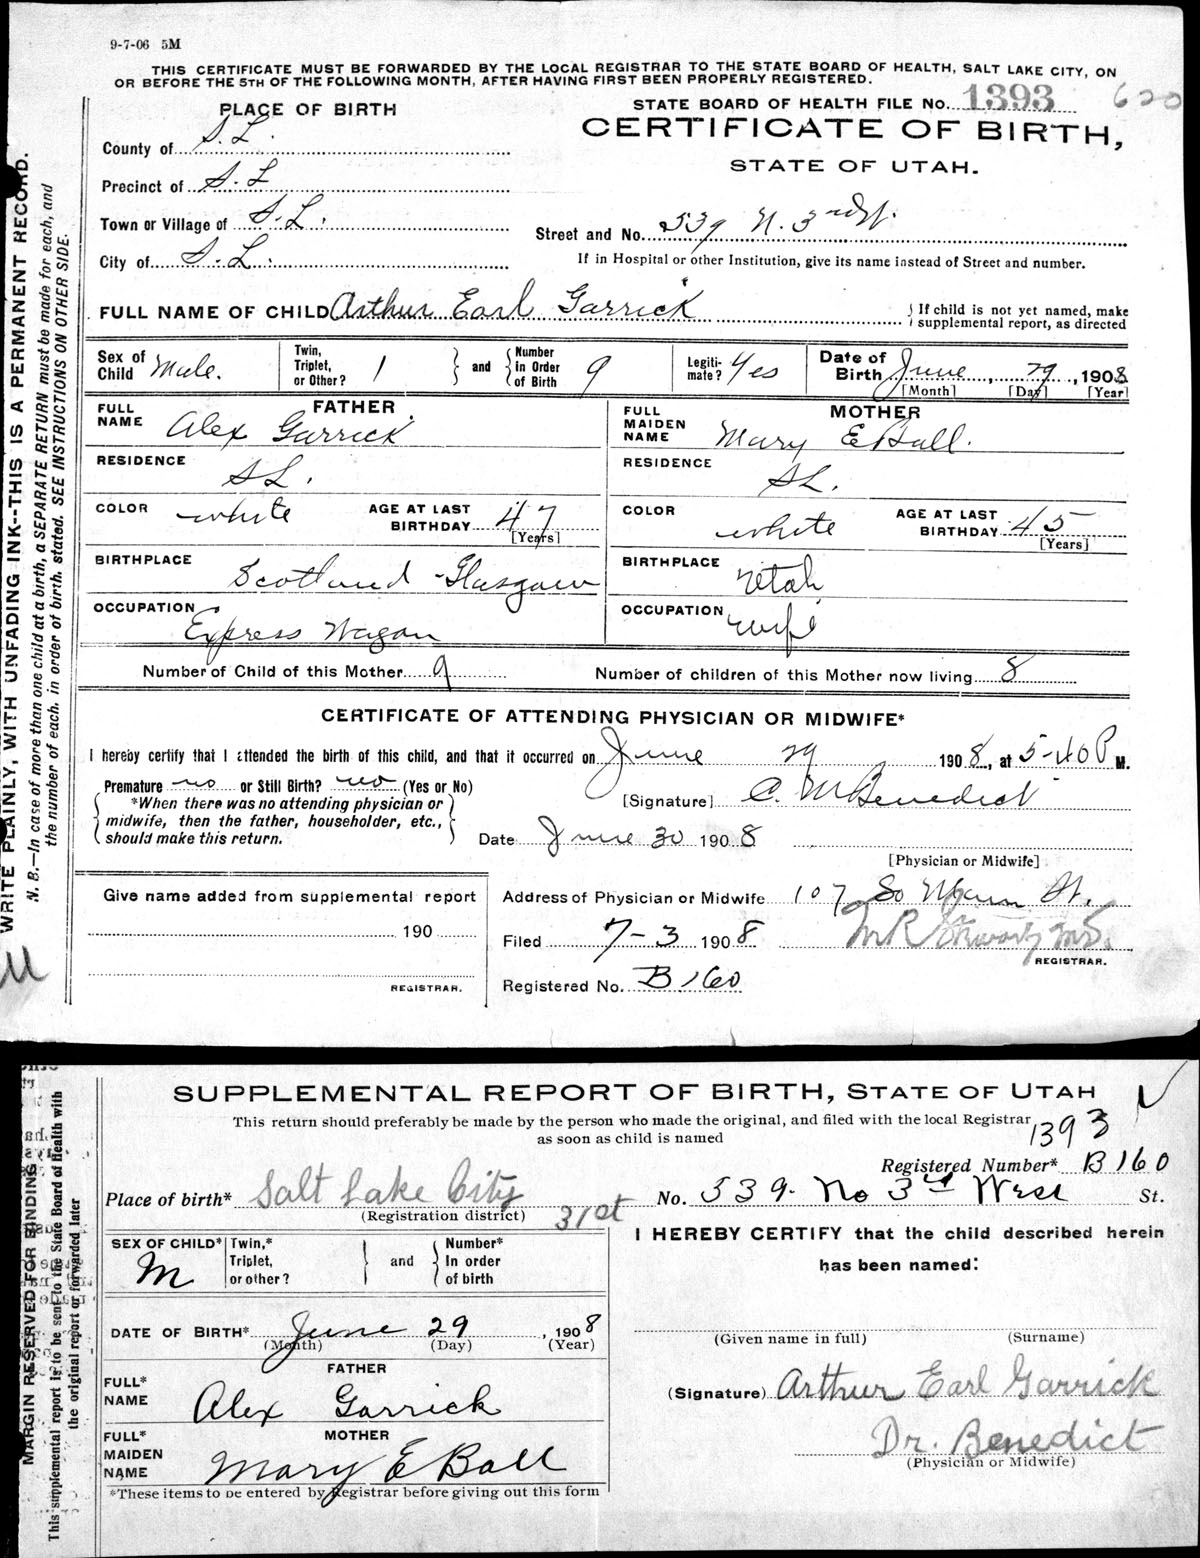 9-7-06 5M
THIS CERTIFICATE MUST BE FORWARDED BY THE LOCAL REGISTRAR TO THE STATE BOARD OF HEALTH, SALT LAKE CITY, ON
OR BEFORE THE 5TH OF THE FOLLOWING MONTH, AFTER HAVING FIRST BEEN PROPERLY REGISTERED.
PLACE OF BIRTH
STATE BOARD OF HEALTH FILE No. 1393 620
CERTIFICATE OF BIRTH,
STATE OF UTAH.
County of S. L.
Precinct of S. L
Town or Village of S. L.
City of S. L.
Street and No. 539 N. 3rd St.
If in Hospital or other Institution, give its name instead of Street and number.
FULL NAME OF CHILD Arthur Earl Garrick
If child is not yet named, make
supplemental report, as directed
Sex of Child Male.
Twin, Triplet, or Other? 1 and Number in Order of Birth 9
Legiti- mate? Yes
Date of Birth June, 29, 1908
[Month] [Day] [Year]
FATHER
FULL NAME Alex Garrick
RESIDENCE S L.
COLOR white AGE AT LAST BIRTHDAY 47
[Years]
BIRTHPLACE Scotland - Glasgow
OCCUPATION Express Wagon
MOTHER
FULL MAIDEN NAME Mary E Ball.
RESIDENCE S L.
COLOR white AGE AT LAST BIRTHDAY 45
[Years]
BIRTHPLACE Utah
OCCUPATION wife
Number of Child of this Mother 9 Number of children of this Mother now living 8
CERTIFICATE OF ATTENDING PHYSICIAN OR MIDWIFE*
I hereby certify that I attended the birth of this child, and that it occurred on June 29 1908, at 5-40 P M.
Premature no or Still Birth? no (Yes or No)
*When there was no attending physician or
midwife, then the father, householder, etc.,
should make this return.
[Signature] C. M Benedict
Date June 30 1908
[Physician or Midwife]
Give name added from supplemental report
190
REGISTRAR.
Address of Physician or Midwife 107 So Main St.
Filed 7-3 1908
REGISTRAR.
Registered No. B160
WRITE PLAINLY, WITH UNFADING INK--THIS IS A PERMANENT RECORD.
N. B.—In case of more than one child at a birth, a SEPARATE RETURN must be made for each, and
the number of each, in order of birth, stated. SEE INSTRUCTIONS ON OTHER SIDE.
SUPPLEMENTAL REPORT OF BIRTH, STATE OF UTAH
This return should preferably be made by the person who made the original, and filed with the local Registrar
as soon as child is named
1393
Registered Number* B160
Place of birth* Salt Lake City No. 539. No 3rd West St.
(Registration district) 31st
SEX OF CHILD* M
Twin,* Triplet, or other? and Number* In order of birth
DATE OF BIRTH* June 29, 1908
(Month) (Day) (Year)
FATHER
FULL* NAME Alex Garrick
MOTHER
FULL* MAIDEN NAME Mary E Ball
*These items to be entered by Registrar before giving out this form
I HEREBY CERTIFY that the child described herein
has been named:
(Given name in full) (Surname)
(Signature) Arthur Earl Garrick
Dr. Benedict
(Physician or Midwife)
MARGIN RESERVED FOR BINDING
This supplemental report is to be sent to the State Board of Health with
the original report or forwarded later